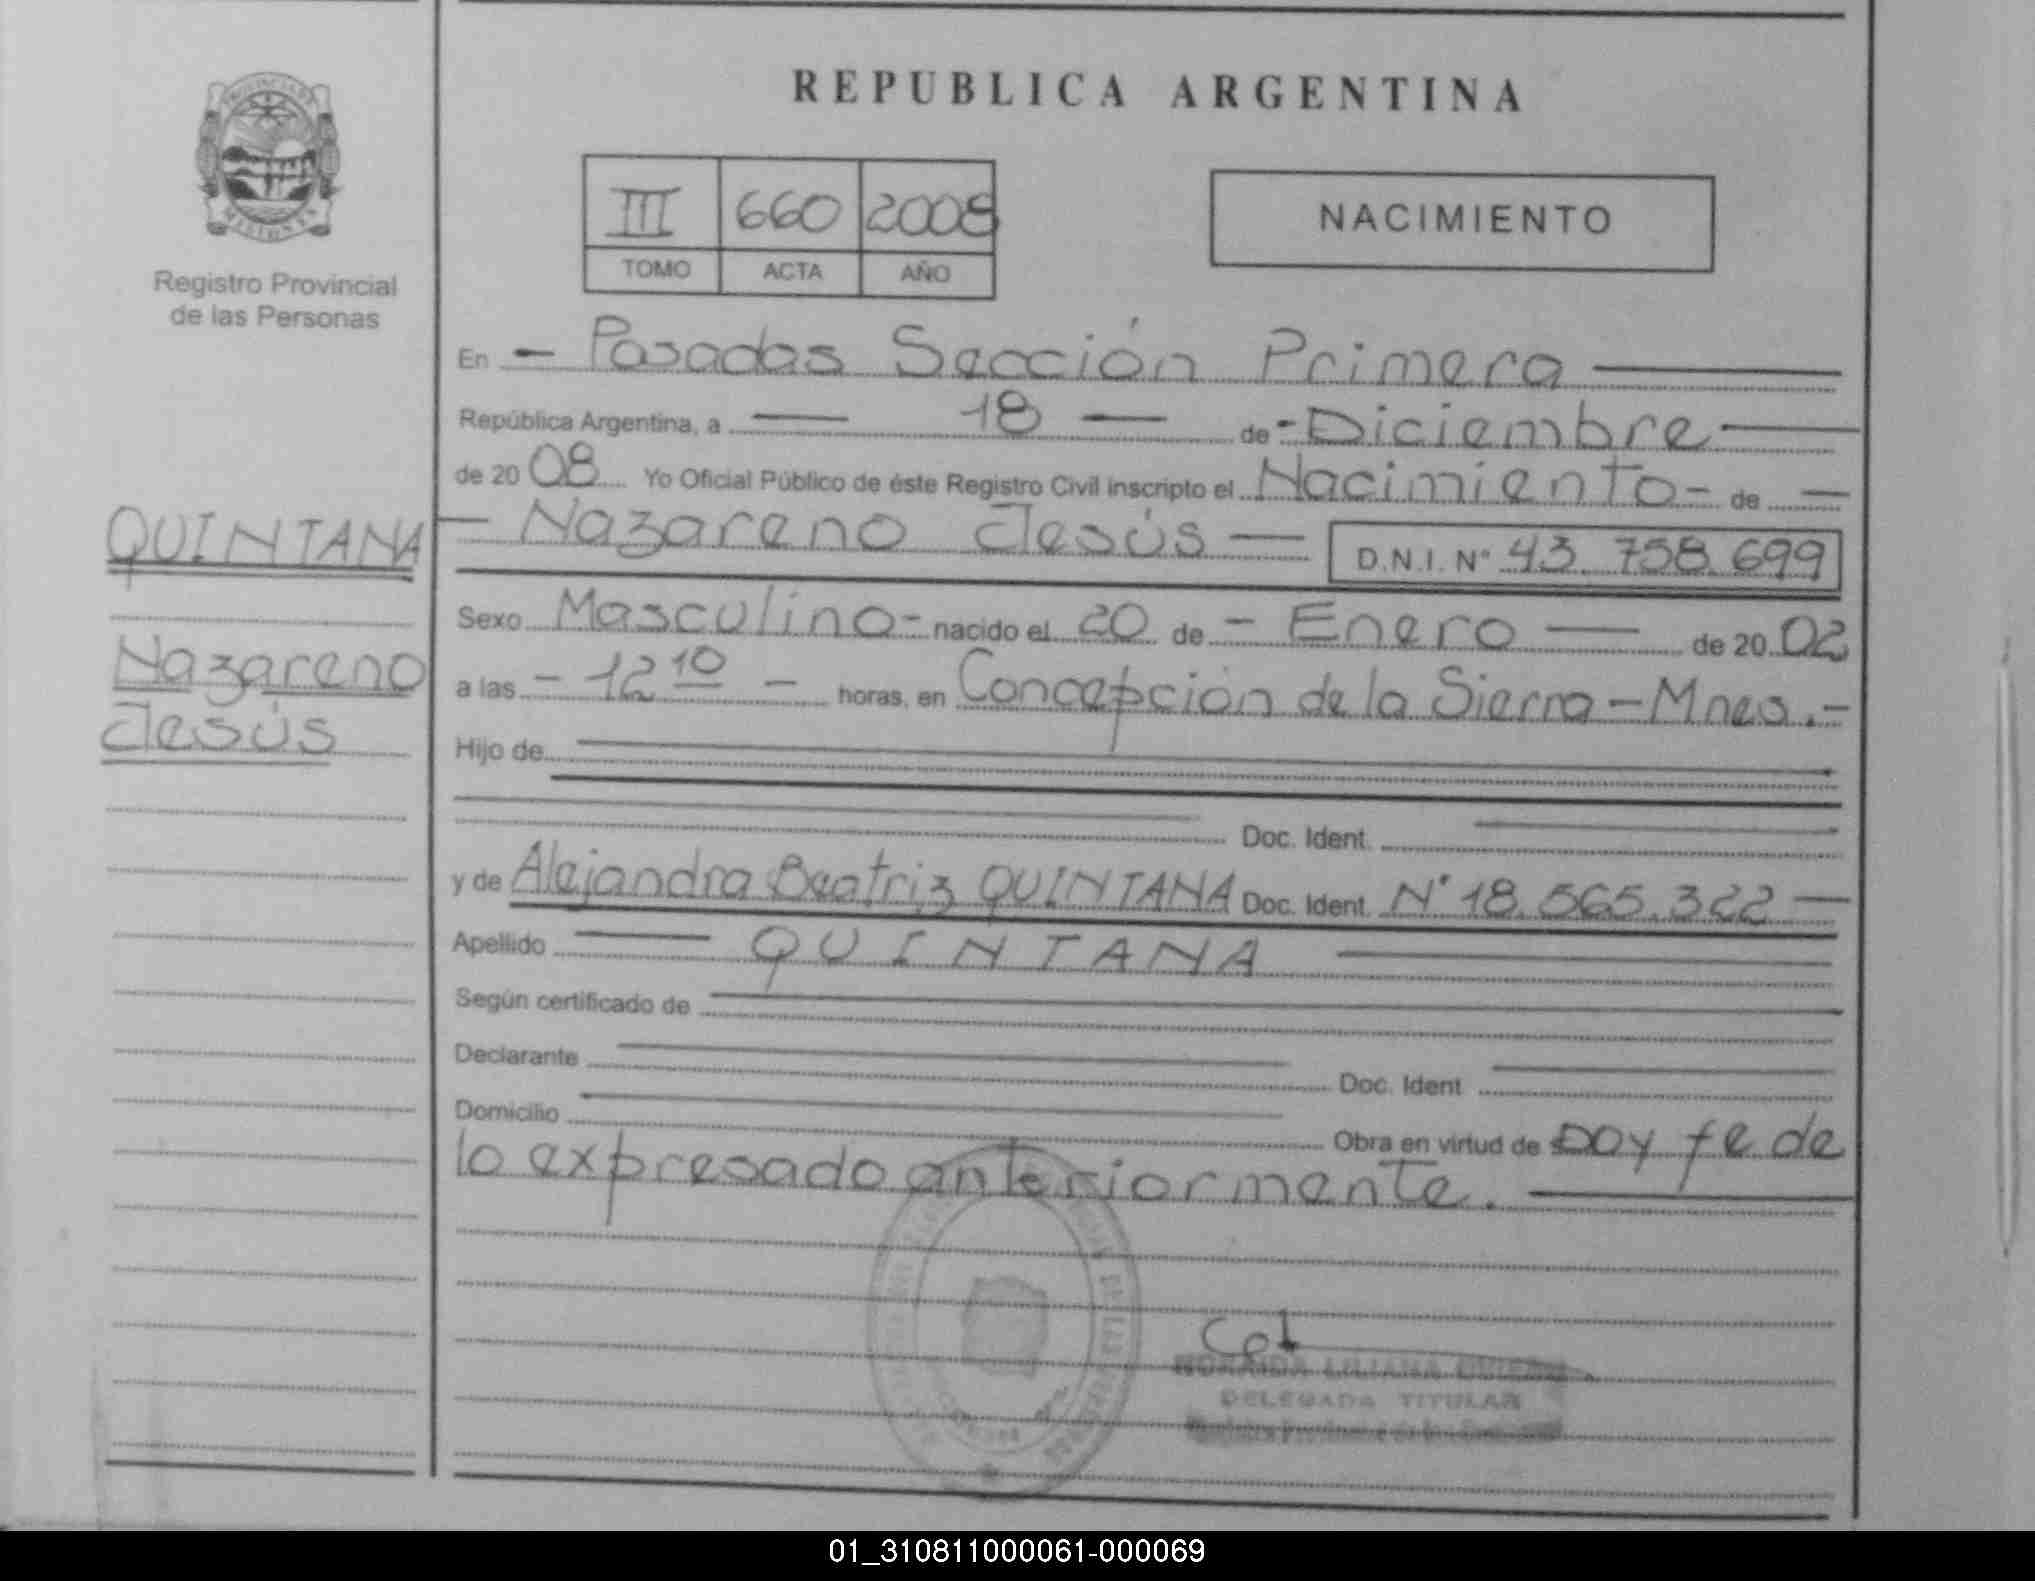 REPUBLICA ARGENTINA
III 660 2008
TOMO ACTA AÑO
NACIMIENTO
PROVINCIA DE
MISIONES
Registro Provincial
de las Personas
QUINTANA
Nazareno
Jesús
En - Posadas Sección Primera
República Argentina, a 18 de - Diciembre
de 20 08 Yo Oficial Público de éste Registro Civil inscripto el Nacimiento - de -
- Nazareno Jesús - D.N.I. N° 43.758.699
Sexo Masculino - nacido el 20 de - Enero - de 20 02
a las - 12 10 - horas, en Concepción de la Sierra - Mnes. -
Hijo de
Doc. Ident.
y de Alejandra Beatriz QUINTANA Doc. Ident. N° 18.565.322 -
Apellido - QUINTANA
Según certificado de
Declarante
Doc. Ident
Domicilio
Obra en virtud de Doy fe de
lo expresado anteriormente.
LILIANA
DELEGADA TITULAR
01_310811000061-000069